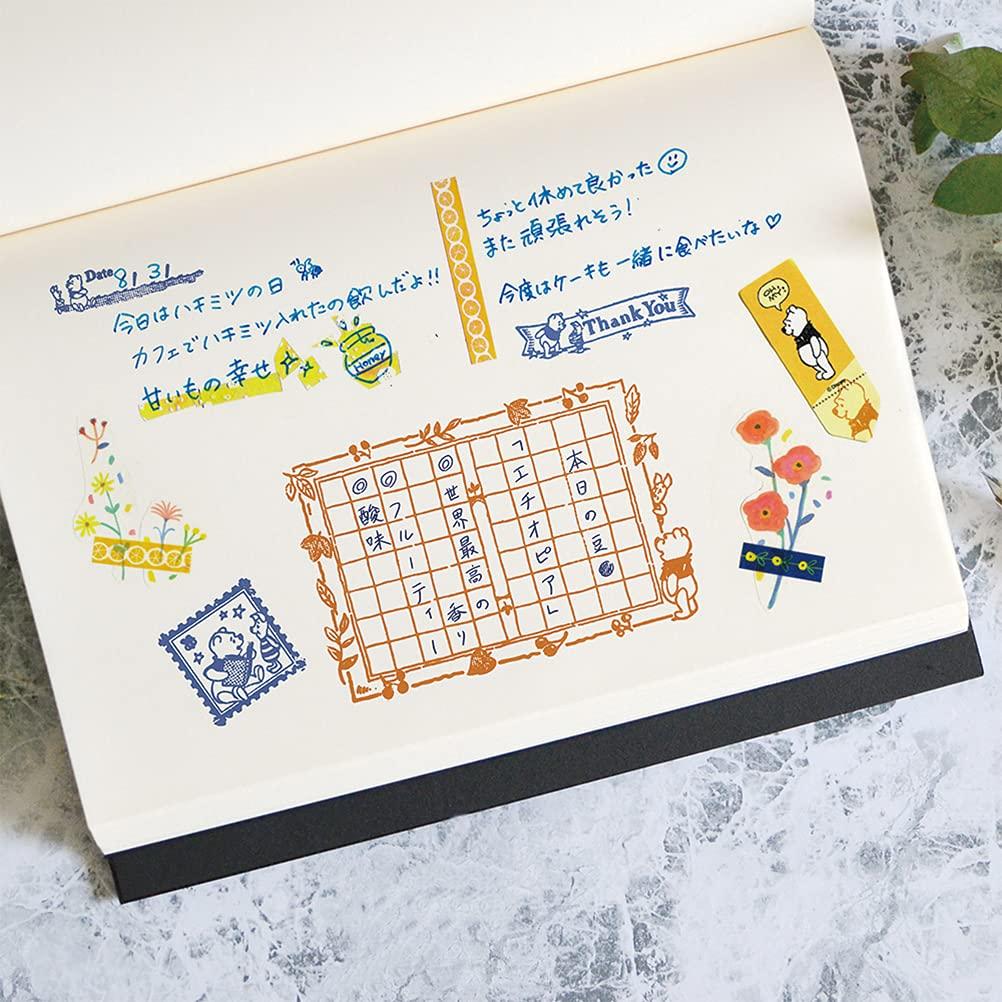 Date 8/31
今日はハチミツの日
カフェでハチミツ入れたの飲んだよ!!
甘いもの幸せ
Honey
ちょっと休めて良かった
また頑張れそう!
今度はケーキも一緒に食べたいな♡
Thank You
OH, MY!
© Disney
本日の豆
「エチオピア」
◎世界最高の香り
◎フルーティー
◎酸味